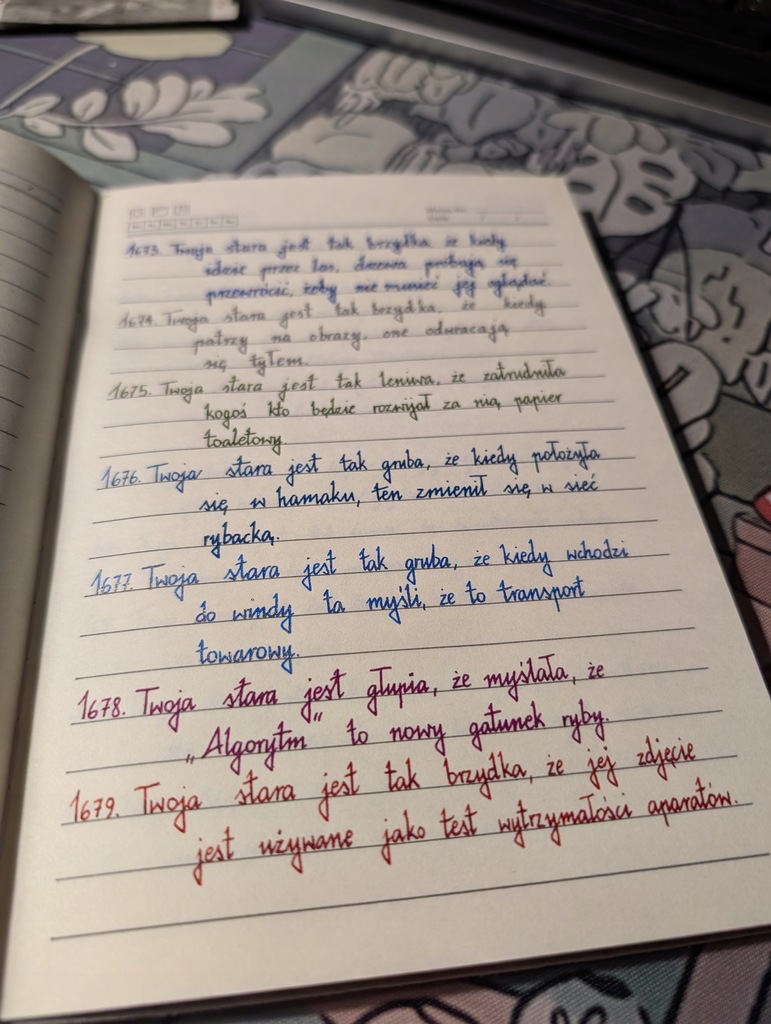 1673. Twoja stara jest tak brzydka że kiedy
idzie przez las, drzewa próbują się
przewrócić, żeby nie musieć jej oglądać.
1674. Twoja stara jest tak brzydka, że kiedy
patrzy na obrazy, one odwracają
się tyłem.
1675. Twoja stara jest tak leniwa, że zatrudniła
kogoś kto będzie rozwijał za nią papier
toaletowy.
1676. Twoja stara jest tak gruba, że kiedy położyła
się w hamaku, ten zmienił się w sieć
rybacką.
1677. Twoja stara jest tak gruba, że kiedy wchodzi
do windy ta myśli, że to transport
towarowy.
1678. Twoja stara jest głupia, że myślała, że
„Algorytm" to nowy gatunek ryby.
1679. Twoja stara jest tak brzydka, że jej zdjęcie
jest używane jako test wytrzymałości aparatów.